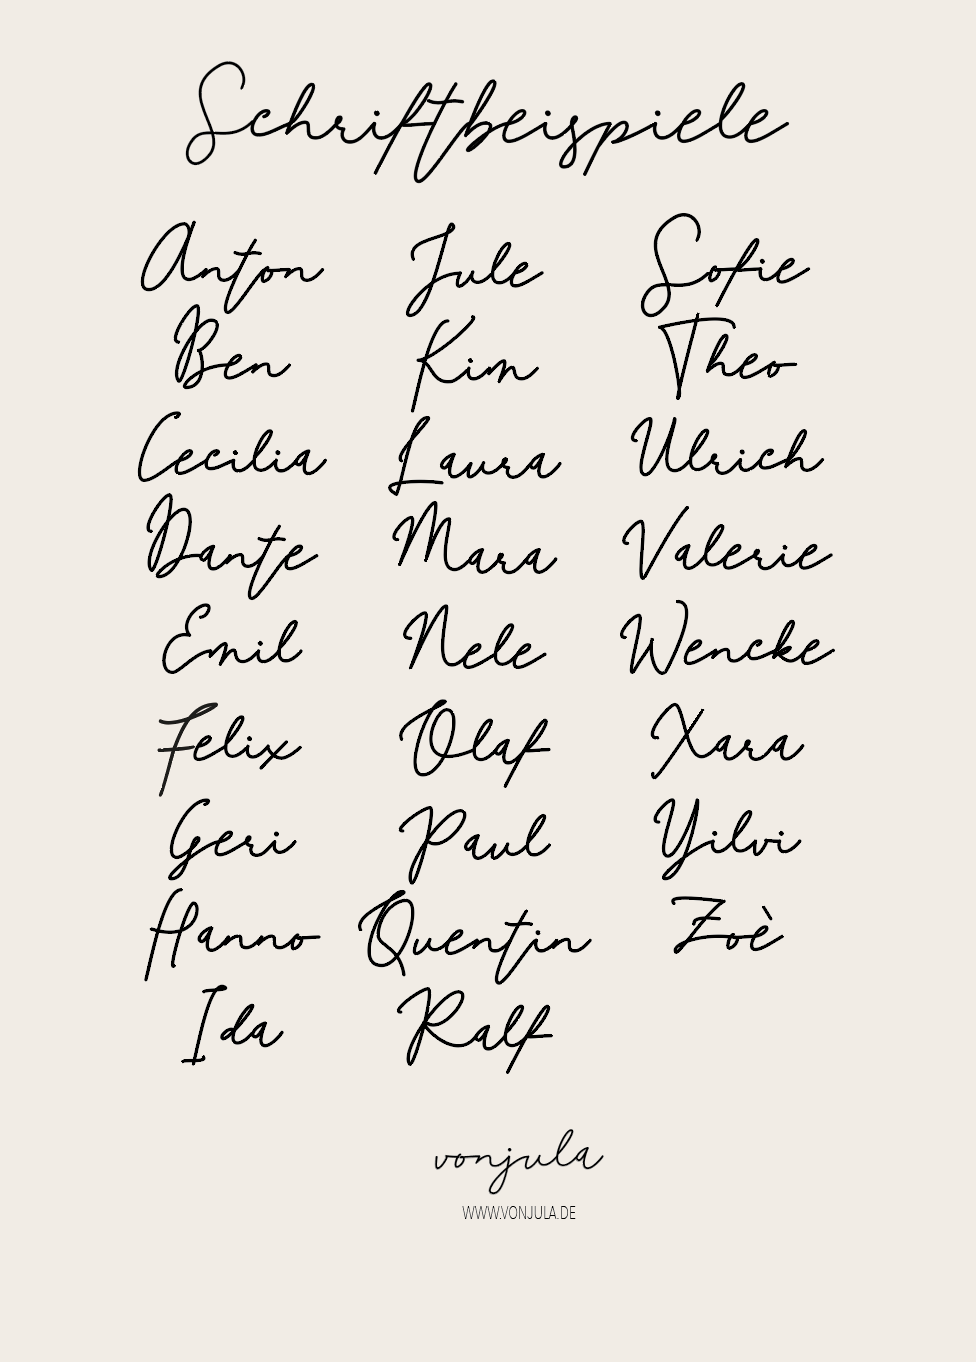 Schriftbeispiele
Anton
Ben
Cecilia
Dante
Emil
Felix
Geri
Hanno
Ida
Jule
Kim
Laura
Mara
Nele
Olaf
Paul
Quentin
Ralf
Sofie
Theo
Ulrich
Valerie
Wencke
Xara
Yilvi
Zoè
vonjula
WWW.VONJULA.DE